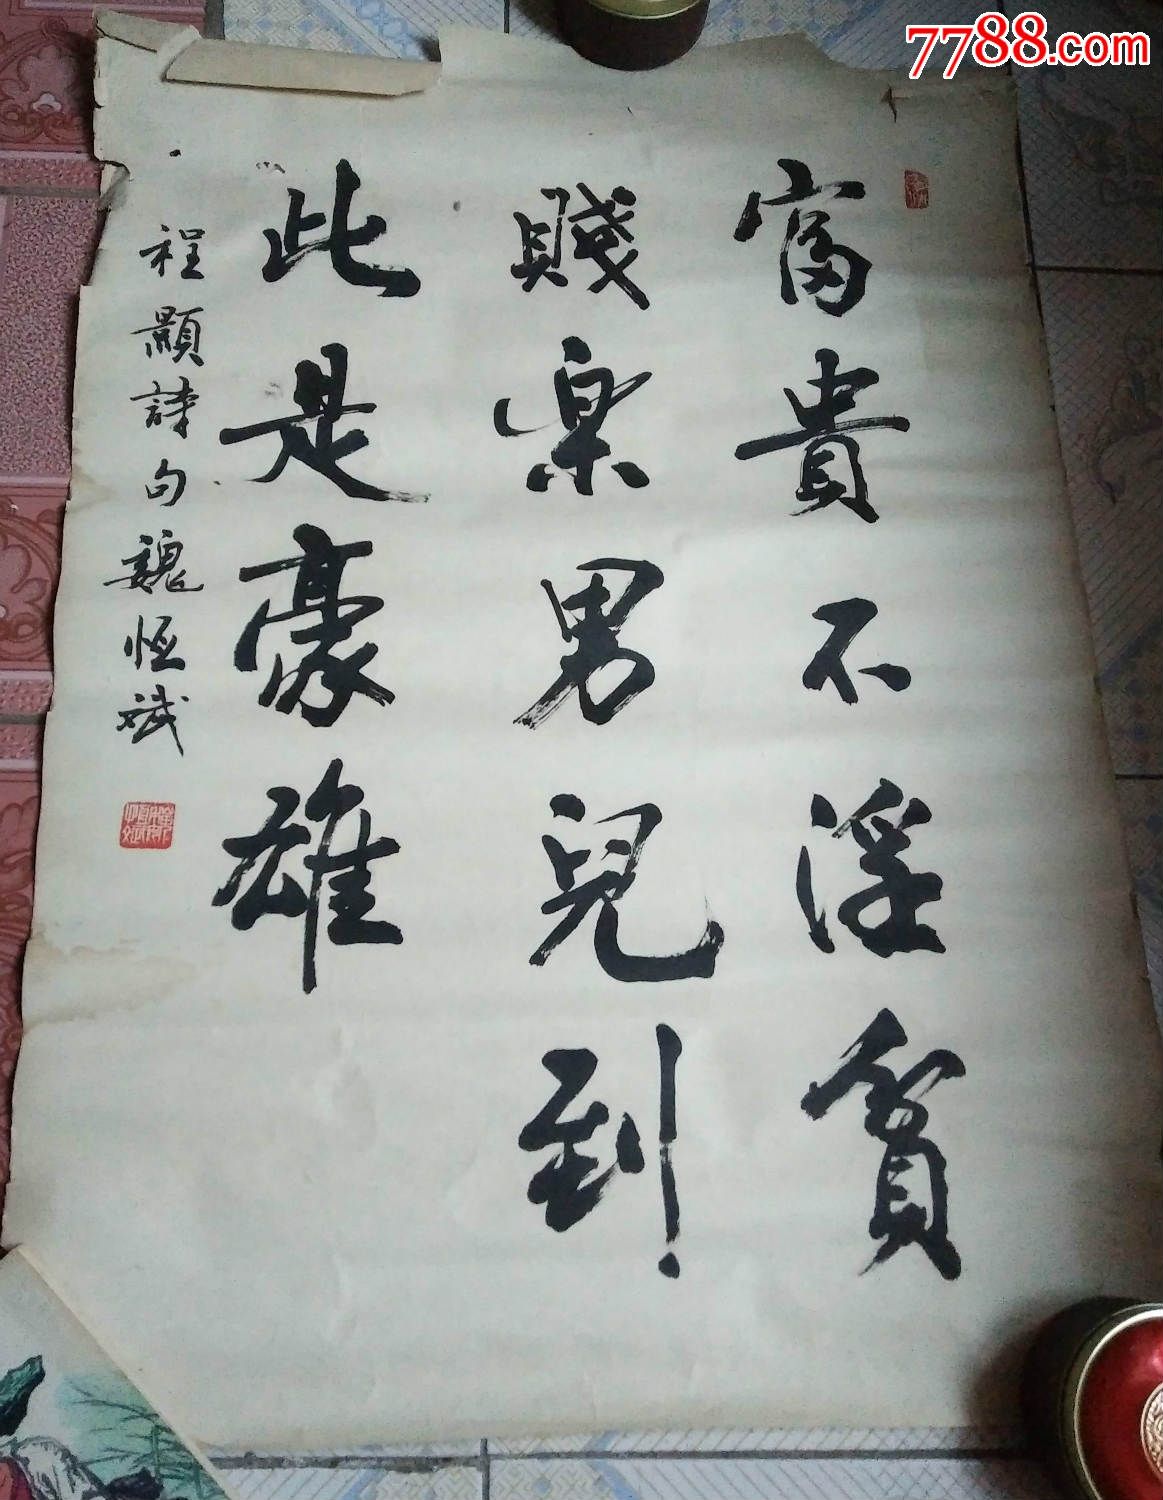 富貴不淫貧
賤樂男兒到
此是豪雄
程顥詩句魏恒斌
7788.com